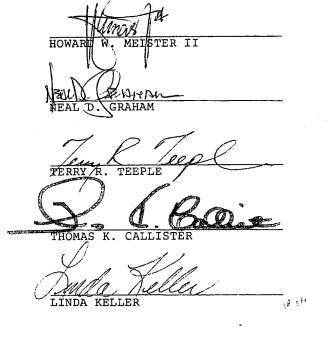 HOWARD W. MEISTER II
Neal D. Graham
NEAL D. GRAHAM
Terry R Teeple
TERRY R. TEEPLE
THOMAS K. CALLISTER
Linda Keller
LINDA KELLER